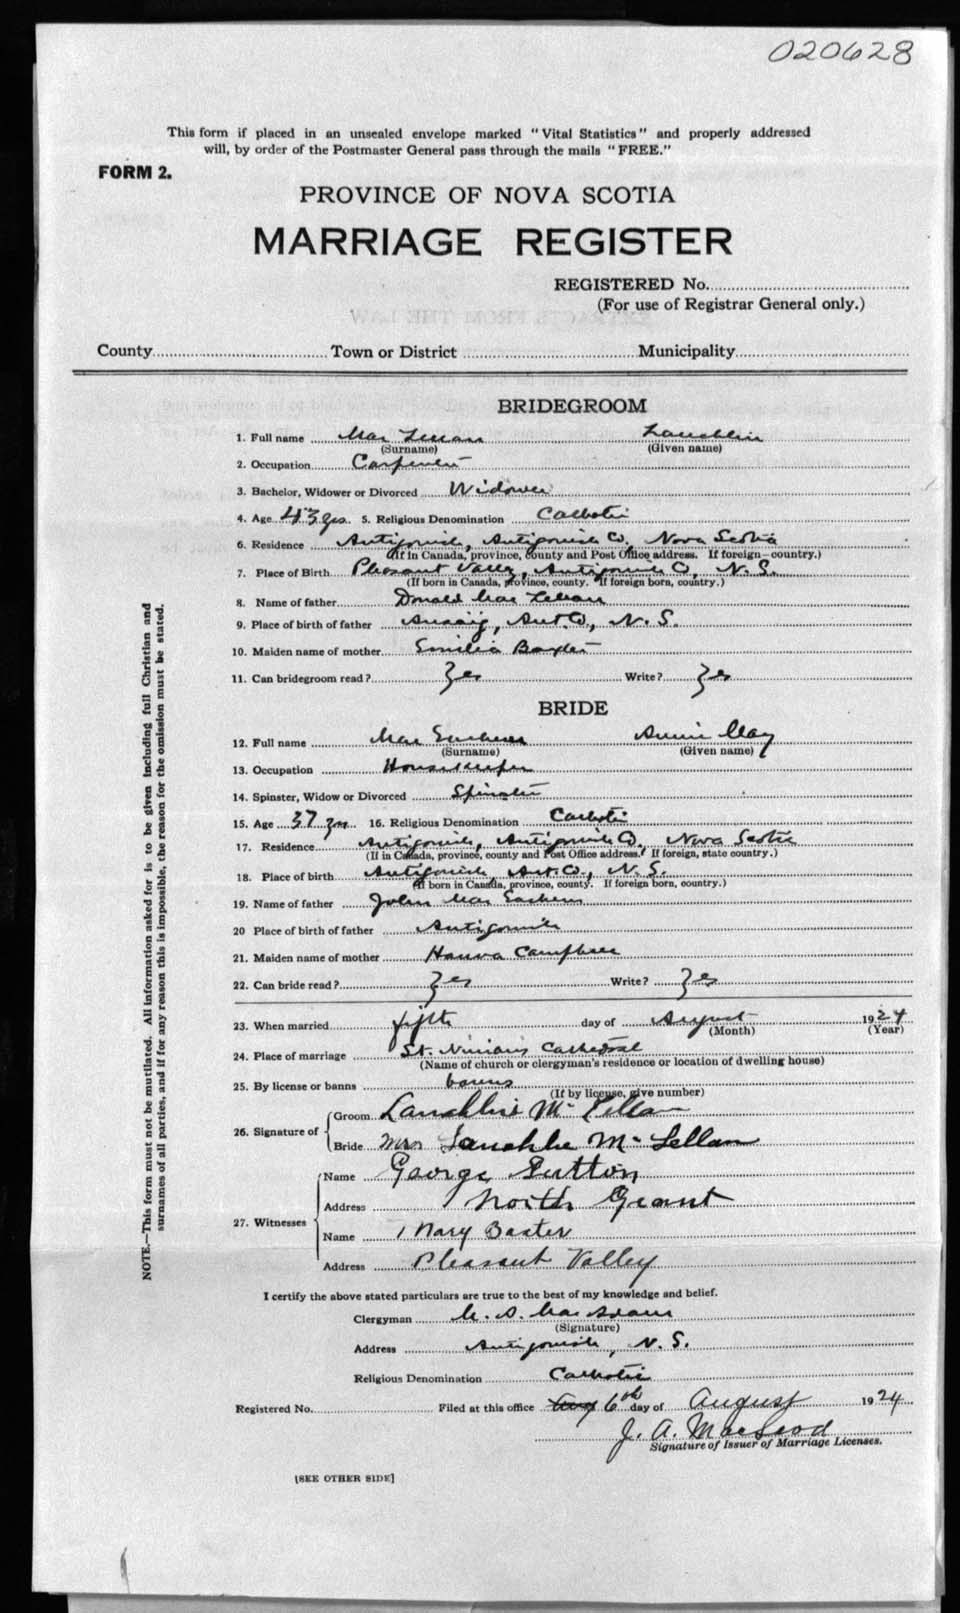 020628
This form if placed in an unsealed envelope marked "Vital Statistics" and properly addressed
will, by order of the Postmaster General pass through the mails "FREE."
FORM 2.
PROVINCE OF NOVA SCOTIA
MARRIAGE REGISTER
REGISTERED No.
(For use of Registrar General only.)
County Town or District Municipality
BRIDEGROOM
1. Full name Mac Lellan Lauchlin
(Surname) (Given name)
2. Occupation Carpenter
3. Bachelor, Widower or Divorced Widower
4. Age 43 yrs. 5. Religious Denomination Catholic
6. Residence Antigonish, Antigonish Co, Nova Scotia
(If in Canada, province, county and Post Office address. If foreign—country.)
7. Place of Birth Pleasant Valley, Antigonish Co, N. S.
(If born in Canada, province, county. If foreign born, country.)
8. Name of father Donald Mac Lellan
9. Place of birth of father Arisaig, Ant. Co., N. S.
10. Maiden name of mother Emilia Baxter
11. Can bridegroom read? Yes Write? Yes
BRIDE
12. Full name Mac Eachern Annie May
(Surname) (Given name)
13. Occupation Housekeeper
14. Spinster, Widow or Divorced Spinster
15. Age 37 yrs 16. Religious Denomination Catholic
17. Residence Antigonish, Antigonish Co. Nova Scotia
(If in Canada, province, county and Post Office address. If foreign, state country.)
18. Place of birth Antigonish, Ant. Co., N. S.
(If born in Canada, province, county. If foreign born, country.)
19. Name of father John Mac Eachern
20 Place of birth of father Antigonish
21. Maiden name of mother Hanna Campbell
22. Can bride read? Yes Write? Yes
23. When married fifth day of August 1924
(Month) (Year)
24. Place of marriage St. Ninian's Cathedral
(Name of church or clergyman's residence or location of dwelling house)
25. By license or banns banns
(If by license, give number)
26. Signature of Groom Lauchlin Mc Lellan
Bride Mrs Lauchlin Mc Lellan
27. Witnesses Name George Sutton
Address North Grant
Name Mary Baxter
Address Pleasant Valley
I certify the above stated particulars are true to the best of my knowledge and belief.
Clergyman M. A. MacAdam
(Signature)
Address Antigonish, N. S.
Religious Denomination Catholic
Registered No. Filed at this office Aug 6th day of August 1924
J. A. MacLeod
Signature of Issuer of Marriage Licenses.
[SEE OTHER SIDE]
NOTE.—This form must not be mutilated. All information asked for is to be given including full Christian and
surnames of all parties, and if for any reason this is impossible, the reason for the omission must be stated.